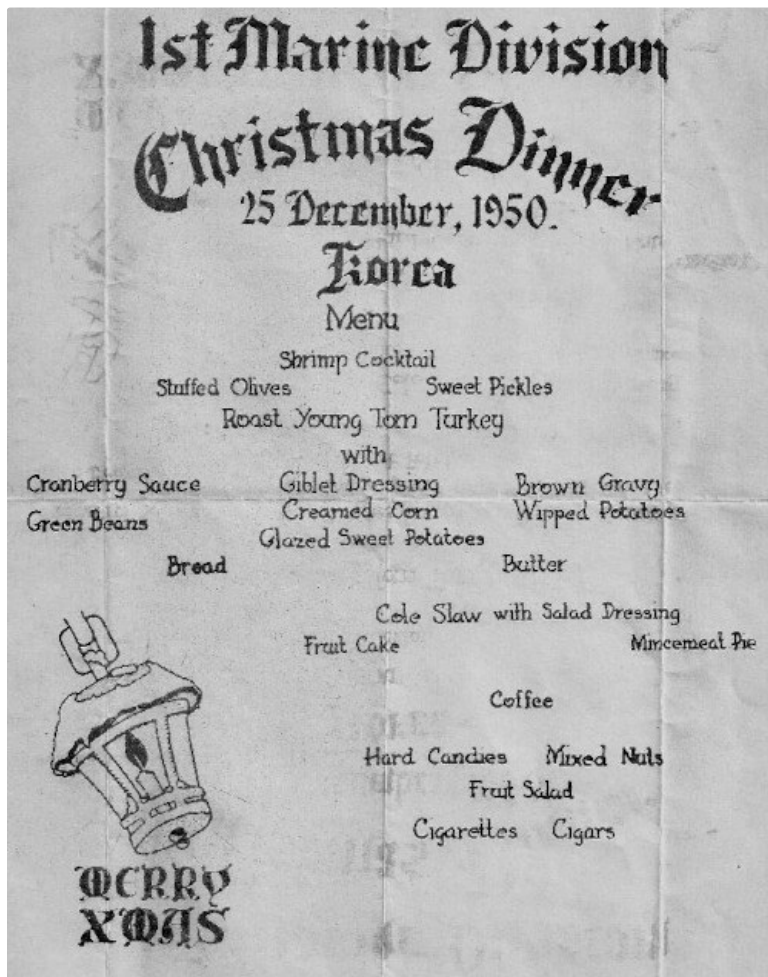 1st Marine Division
Christmas Dinner
25 December, 1950.
Korea
Menu
Shrimp Cocktail
Stuffed Olives Sweet Pickles
Roast Young Tom Turkey
with
Cranberry Sauce Giblet Dressing Brown Gravy
Green Beans Creamed Corn Wipped Potatoes
Glazed Sweet Potatoes
Bread Butter
Cole Slaw with Salad Dressing
Fruit Cake Mincemeat Pie
Coffee
Hard Candies Mixed Nuts
Fruit Salad
Cigarettes Cigars
MERRY
XMAS